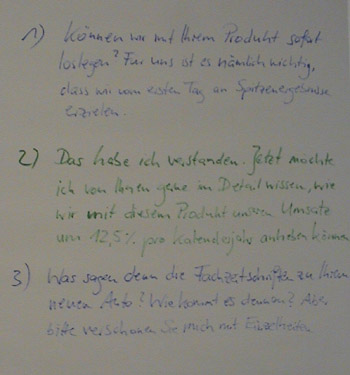 1) Können wir mit Ihrem Produkt sofort
loslegen? Für uns ist es nämlich wichtig,
dass wir vom ersten Tag an Spitzenergebnisse
erzielen.
2) Das habe ich verstanden. Jetzt möchte
ich von Ihnen gerne im Detail wissen, wie
wir mit diesem Produkt unseren Umsatz
um 12,5% pro Kalenderjahr anheben können
3) Was sagen denn die Fachzeitschriften zu Ihrem
neuen Auto? Wie kommt es denn an? Aber
bitte verschonen Sie mich mit Einzelheiten